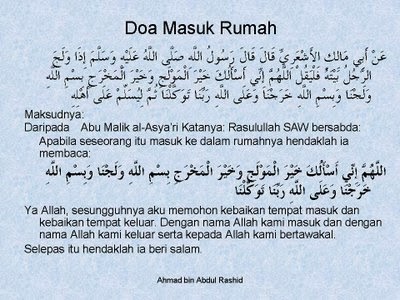 Doa Masuk Rumah
عَنْ أَبِي مَالِكٍ الأَشْعَرِيِّ قَالَ قَالَ رَسُولُ اللَّهِ صَلَّى اللَّهُ عَلَيْهِ وَسَلَّمَ إِذَا وَلَجَ
الرَّجُلُ بَيْتَهُ فَلْيَقُلْ اللَّهُمَّ إِنِّي أَسْأَلُكَ خَيْرَ الْمَوْلَجِ وَخَيْرَ الْمَخْرَجِ بِسْمِ اللَّهِ
وَلَجْنَا وَبِسْمِ اللَّهِ خَرَجْنَا وَعَلَى اللَّهِ رَبِّنَا تَوَكَّلْنَا ثُمَّ لِيُسَلِّمْ عَلَى أَهْلِهِ
Maksudnya:
Daripada Abu Malik al-Asya'ri Katanya: Rasulullah SAW bersabda:
Apabila seseorang itu masuk ke dalam rumahnya hendaklah ia
membaca:
اللَّهُمَّ إِنِّي أَسْأَلُكَ خَيْرَ الْمَوْلَجِ وَخَيْرَ الْمَخْرَجِ بِسْمِ اللَّهِ وَلَجْنَا وَبِسْمِ اللَّهِ
خَرَجْنَا وَعَلَى اللَّهِ رَبِّنَا تَوَكَّلْنَا
Ya Allah, sesungguhnya aku memohon kebaikan tempat masuk dan
kebaikan tempat keluar. Dengan nama Allah kami masuk dan dengan
nama Allah kami keluar serta kepada Allah kami bertawakal.
Selepas itu hendaklah ia beri salam.
Ahmad bin Abdul Rashid